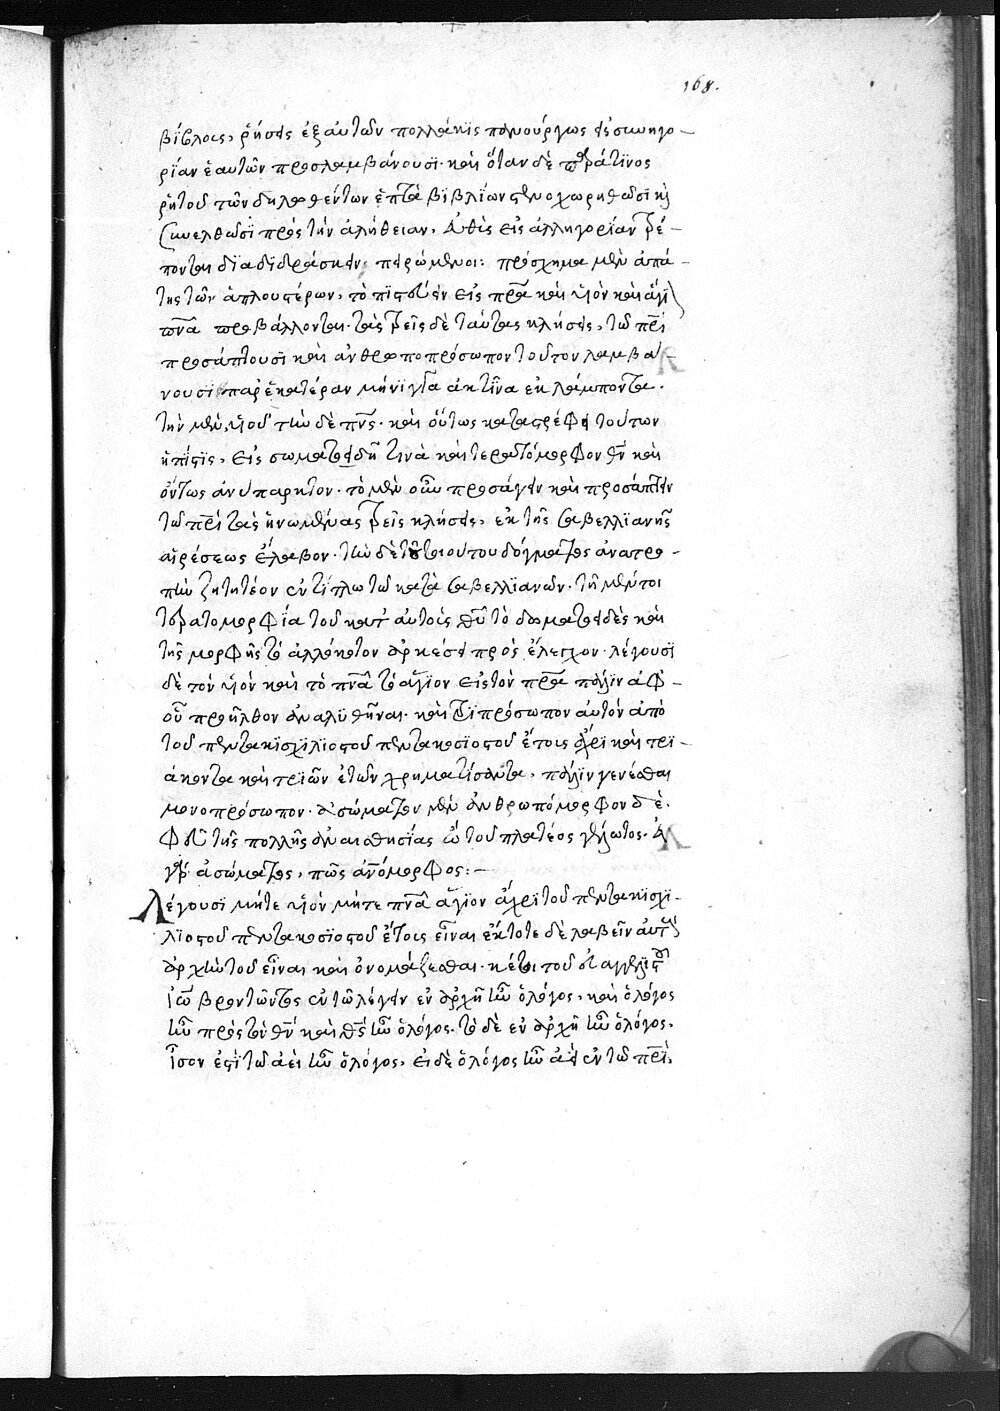 168.
βίβλοις, ῥήσεις ἐξ αὐτῶν πολλάκϊς πανούργως εἰς συνηγο-
ρίαν ἑαυτῶν προσλαμβάνουσι· καὶ ὅταν δὲ παρά τϊνος
ῥητοῦ τῶν δηλωθέντων ἑπτὰ βϊβλίων στενοχωρηθῶσϊ κỳ
συνελθωσϊ πρὸς τὴν ἀλήθειαν, εὐθὺς εἰς ἀλληγορίαν τρέ-
πονται δϊαδϊδράσκειν πειρώμενοι: πρόσχημα μὲν ἀπά-
της τῶν ἁπλουστέρων, τὸ πϊστεύειν εἰς πρα καὶ υἱὸν καὶ ἅγϊ
πνα προβάλλονται· τὰς τρεῖς δὲ ταύτας κλήσεις, τῶ πρι
προσάπτουσϊ καὶ ἀνθρωποπρόσωπον τοῦτον λαμβά-
νουσϊ παρ' ἑκατέραν μήνϊγγα ἀκτῖνα ἐκλάμποντα·
τὴν μὲν, υἱοῦ τὴν δὲ πνς· καὶ οὕτως καταστρέφει τούτων
ἡ πίστϊς, εἰς σωματειδῆ τινὰ καὶ τερατόμορφον θν καὶ
ὄντως ἀνύπαρκτον· τὸ μὲν οὖν προσάγειν καὶ προσάπτειν
τῶ πρι τὰς ἡνωμένας τρεῖς κλήσεις, ἐκ τῆς σαβελλϊανῆς
αἱρέσεως ἔλαβον· τὴν δὲ τοῦ τοιούτου δόγματος ἀνατρο-
πὴν ζητητέον ἐν τίτλω τῶ κατὰ σαβελλϊανῶν· τῆ μέντοι
τερατομορφία τοῦ κατ' αὐτοὺς θυ τὸ σωματειδὲς καὶ
τῆς μορφῆς τὸ ἀλλόκοτον ἀρκέσει πρὸς ἔλεγχον· λέγουσϊ
δὲ τὸν υἱὸν καὶ τὸ πνα τὸ ἅγϊον εἰς τὸν πρα πάλϊν ἀφ'
οὗ προῆλθον ἀναλυθῆναι· καὶ τρϊπρόσωπον αὐτὸν ἀπὸ
τοῦ πεντακϊσχϊλϊοστοῦ πεντακοσϊοστοῦ ἔτους ἄχρϊ καὶ τρϊ-
άκοντα καὶ τρϊῶν ἐτῶν χρηματίσαντα, πάλϊν γενέσθαι
μονοπρόσωπον· ἀσώματον μὲν ἀνθρωπόμορφον δέ.
φεῦ τῆς πολλῆς ἀναισθησίας ὢ τοῦ πλατέος γέλωτος· εἰ
γὰρ ἀσώματος, πῶς ἀνόμορφος:-
Λέγουσϊ μήτε υἱὸν μήτε πνα ἅγϊον ἄχρϊ τοῦ πεντακϊσχϊ-
λϊοστοῦ πεντακοσϊοστοῦ ἔτους εἶναι ἔκτοτε δὲ λαβεῖν αὐτοὺς
ἀρχὴν τοῦ εἶναι καὶ ὀνομάζεσθαι· καίτοι τοῦ εὐαγγελϊστοῦ
ἰω βροντῶντος ἐν τῶ λέγειν ἐν ἀρχῆ ἦν ὁ λόγος, καὶ ὁ λόγος
ἦν πρὸς τὸν θν καὶ θς ἦν ὁ λόγος· τὸ δὲ ἐν ἀρχῆ ἦν ὁ λόγος,
ἶσον ἐστϊ τῶ ἀεὶ ἦν ὁ λόγος, εἰ δὲ ὁ λόγος ἦν ἀεὶ ἐν τῶ πρι,